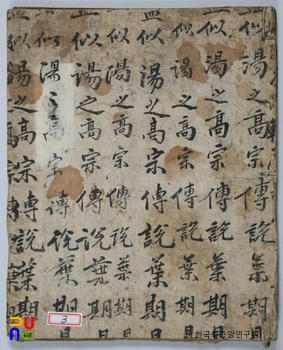 似湯之高宗傳說葉期
似湯之高宗傳說葉期
似湯之高宗傳說葉期
似湯之高宗傳說葉期
似湯之高宗傳說葉期
似湯之高宗傳說葉期
似湯之高宗傳說葉期
似湯之高宗傳說葉
3
한국학중앙연구원